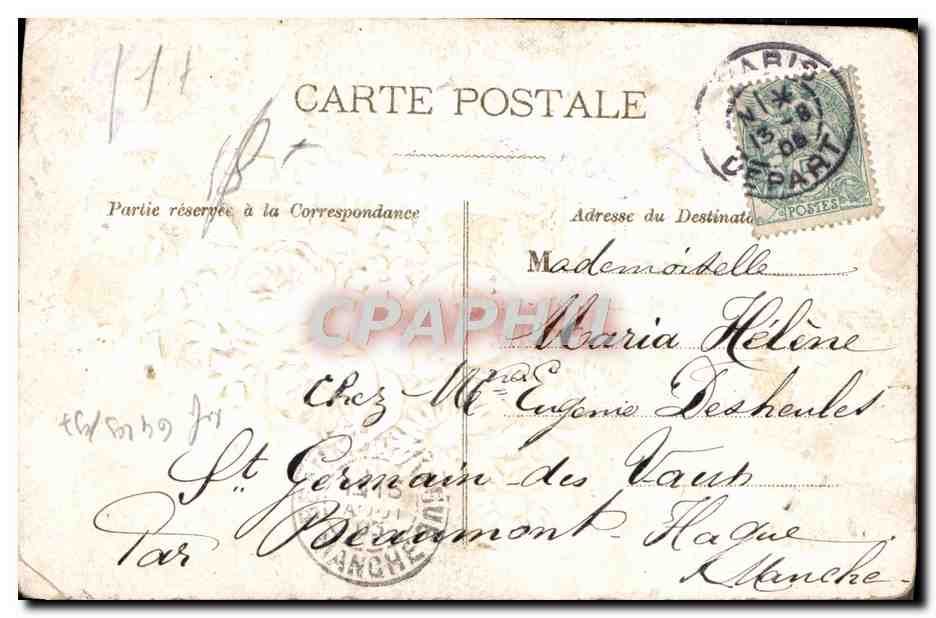 CARTE POSTALE
PARIS
13 - 8
DÉPART
POSTES
Partie réservée à la Correspondance
Adresse du Destinat
Mademoiselle
CPAPHIL
Maria Hélène
chez Mme Eugenie Desheulles
St Germain des Vaux
MANCHE
Par Beaumont-Hague
Manche